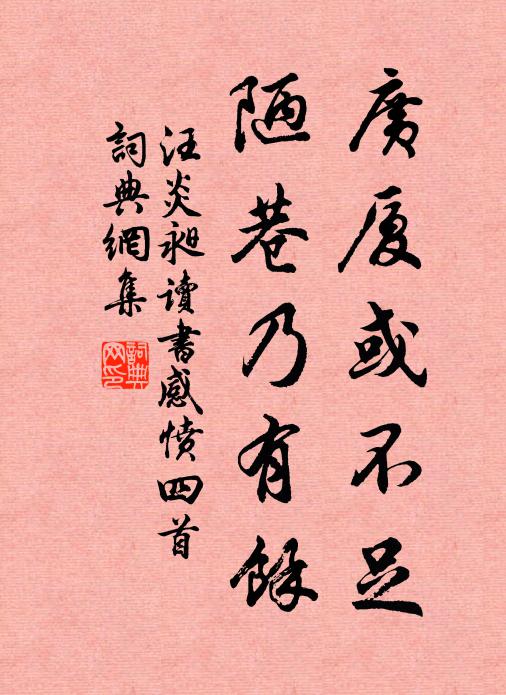 廣厦或不足
陋巷乃有餘
汪炎昶讀書感憤四首
詞典網集
詞典網印